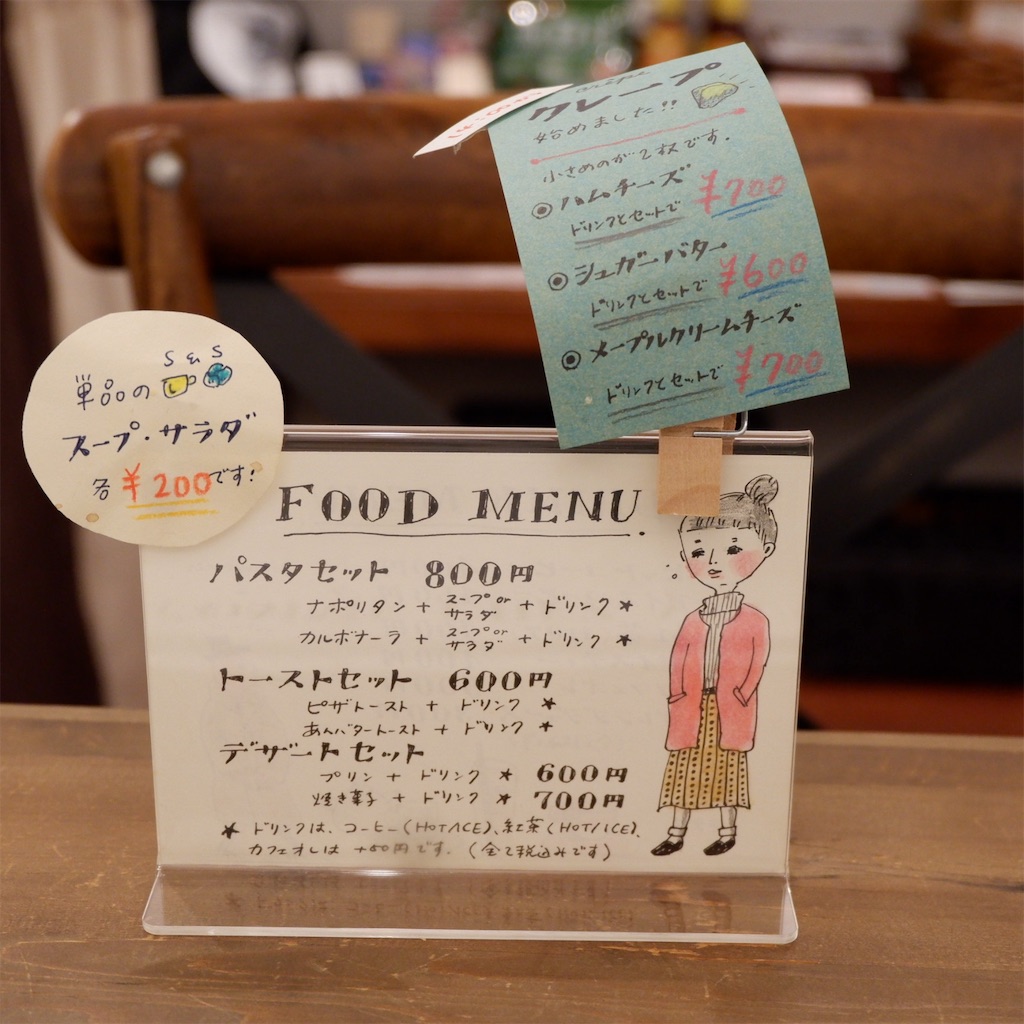 クレープ
始めました!!
小さめのが2枚です.
◉ハムチーズ
ドリンクとセットで ¥700
◉シュガーバター
ドリンクとセットで ¥600
◉メープルクリームチーズ
ドリンクとセットで ¥700
S&S
単品の
スープ・サラダ
各¥200です!
FOOD MENU.
パスタセット 800円
ナポリタン + スープ or サラダ + ドリンク ★
カルボナーラ + スープ or サラダ + ドリンク ★
トーストセット 600円
ピザトースト + ドリンク ★
あんバタートースト + ドリンク ★
デザートセット
プリン + ドリンク ★ 600円
焼き菓子 + ドリンク ★ 700円
★ ドリンクは、コーヒー(HOT/ICE)、紅茶(HOT/ICE)、
カフェオレは +50円です. (全て税込みです)